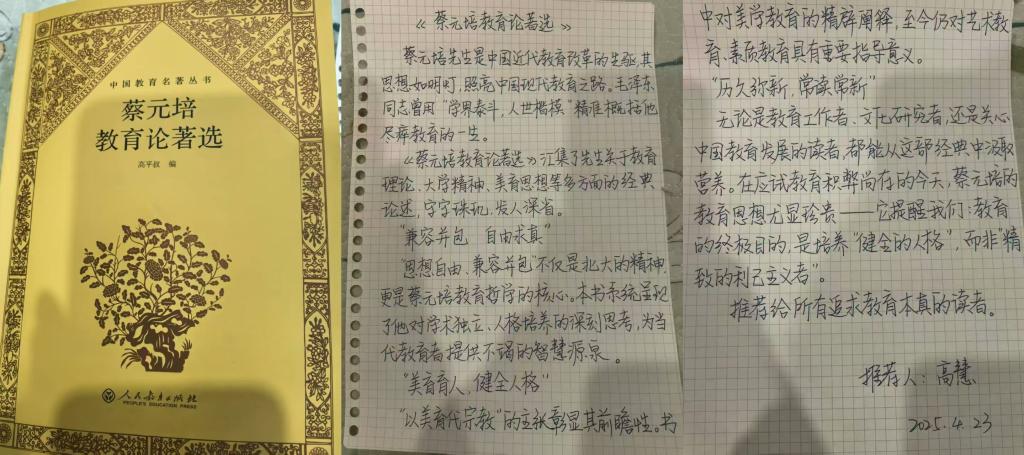 中国教育名著丛书
蔡元培
教育论著选
高平叔 编
人民教育出版社
PEOPLE'S EDUCATION PRESS
《蔡元培教育论著选》
蔡元培先生是中国近代教育改革的先驱,其
思想如明灯,照亮中国现代教育之路。毛泽东
同志曾用"学界泰斗,人世楷模"精准概括他
尽瘁教育的一生。
《蔡元培教育论著选》汇集了先生关于教育
理论、大学精神、美育思想等多方面的经典
论述,字字珠玑,发人深省。
"兼容并包 自由求真"
"思想自由、兼容并包"不仅是北大的精神,
更是蔡元培教育哲学的核心。本书系统呈现
了他对学术独立、人格培养的深刻思考,为当
代教育者提供不竭的智慧源泉。
"美育育人、健全人格"
"以美育代宗教"的主张彰显其前瞻性。书
中对美学教育的精辟阐释,至今仍对艺术教
育、素质教育具有重要指导意义。
"历久弥新,常读常新"
无论是教育工作者、文化研究者,还是关心
中国教育发展的读者,都能从这部经典中汲取
营养。在应试教育积弊尚存的今天,蔡元培的
教育思想尤显珍贵——它提醒我们:教育
的终极目的,是培养"健全的人格",而非"精
致的利己主义者"。
推荐给所有追求教育本真的读者。
推荐人:高慧
2025.4.23